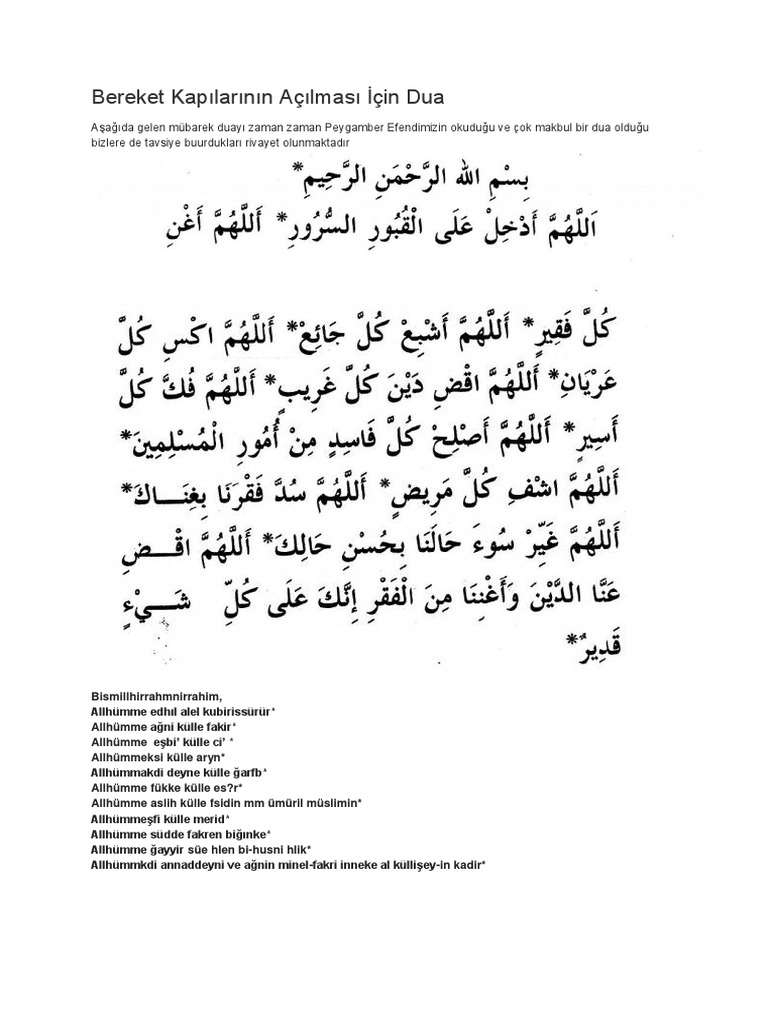 Bereket Kapılarının Açılması İçin Dua
Aşağıda gelen mübarek duayı zaman zaman Peygamber Efendimizin okuduğu ve çok makbul bir dua olduğu
bizlere de tavsiye buurdukları rivayet olunmaktadır
بِسْمِ الله الرَّحْمَنِ الرَّحِيمِ*
اَللَّهُمَّ أَدْخِلْ عَلَى الْقُبُورِ السُّرُورِ* أَللَّهُمَّ أَغْنِ
كُلَّ فَقِيرٍ* أَللَّهُمَّ أَشْبِعْ كُلَّ جَائِعْ* أَللَّهُمَّ اكْسِ كُلَّ
عَرْيَانِ* أَللَّهُمَّ اقْضِ دَيْنَ كُلَّ غَرِيبٍ* أَللَّهُمَّ فُكَّ كُلَّ
أَسِيرٍ* أَللَّهُمَّ أَصْلِحْ كُلَّ فَاسِدٍ مِنْ أُمُورِ الْمُسْلِمِينَ*
أَللَّهُمَّ اشْفِ كُلَّ مَرِيضٍ* أَللَّهُمَّ سُدَّ فَقْرَنَا بِغِنَـــاكَ*
أَللَّهُمَّ غَيِّرْ سُوءَ حَالَنَا بِحُسْنِ حَالِكَ* أَللَّهُمَّ اقْـــضِ
عَنَّا الدَّيْنَ وَأَغْنِنَا مِنَ الْفَقْرِ إِنَّكَ عَلَى كُلِّ شَـــيْءٍ
قَدِيرٌ*
Bismillhirrahmnirrahim,
Allhümme edhıl alel kubirissürür*
Allhümme ağni külle fakir*
Allhümme eşbi’ külle ci’ *
Allhümmeksi külle aryn*
Allhümmakdi deyne külle ğarfb*
Allhümme fükke külle es?r*
Allhümme aslih külle fsidin mm ümüril müslimin*
Allhümmeşfi külle merid*
Allhümme südde fakren biğınke*
Allhümme ğayyir süe hlen bi-husni hlik*
Allhümmkdi annaddeyni ve ağnin minel-fakri inneke al küllişey-in kadir*